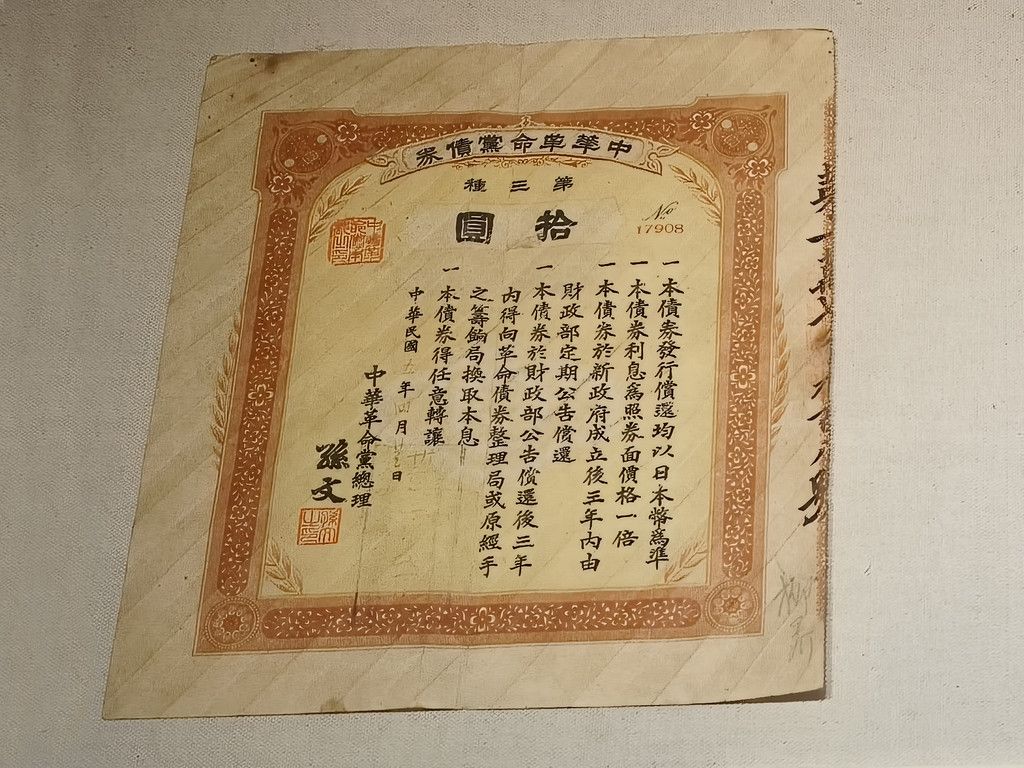 中華革命黨債券
第三種
拾圓
No
17908
一本債券發行償還均以日本幣為準
一本債券利息為照券面價格一倍
一本債券於新政府成立後三年內由
財政部定期公告償還
一本債券於財政部公告償還後三年
內得向革命債券整理局或原經手
之籌餉局換取本息
一本債券得任意轉讓
中華民國五年四月 日
中華革命黨總理
孫文
孫文之印